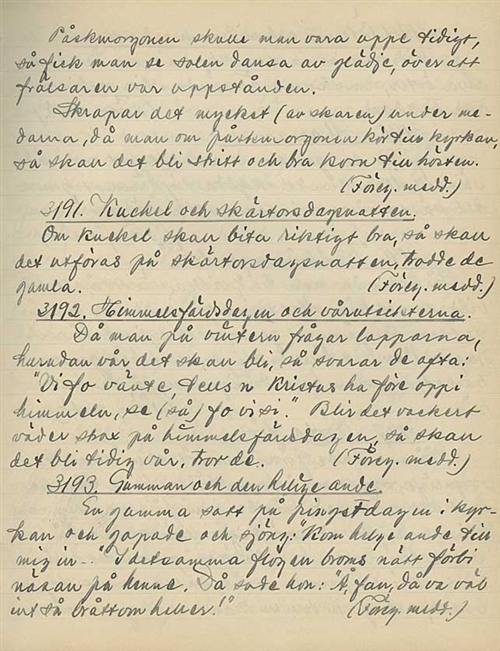 Påskmorgonen skulle man vara uppe tidigt,
så fick man se solen dansa av glädje, över att
frälsaren var uppstånden.
Skrapar det mycket (av skaren) under me-
darna, då man om påskmorgonen kör till kyrkan,
så skall det bli stritt och bra korn till hösten.
(Föreg. medd.)
3191. Kuckel och skärtorsdagsnatten.
Om kuckel skall bita riktigt bra, så skall
det utföras på skärtorsdagsnatten, trodde de
gamla. (Föreg. medd.)
3192. Himmelsfärdsdagen och vårutsikterna.
Då man på vintern frågar lapparna,
hurudan vår det skall bli, så svarar de ofta:
"Vi fo vänte, teus n Kristus ha före oppi
himmeln, se (så) fo vi si." Blir det vackert
väder strax på himmelsfärdsdagen, så skall
det bli tidig vår, tror de. (Föreg. medd.)
3193. Gumman och den helige ande.
En gumma satt på pingstdagen i kyr-
kan och gapade och sjöng: "Kom helge ande till
mig in.." I detsamma flög en broms nätt förbi
näsan på henne. Då sade hon: "Å, fan, då va väl
int så bråttom heller!" (Föreg. medd.)